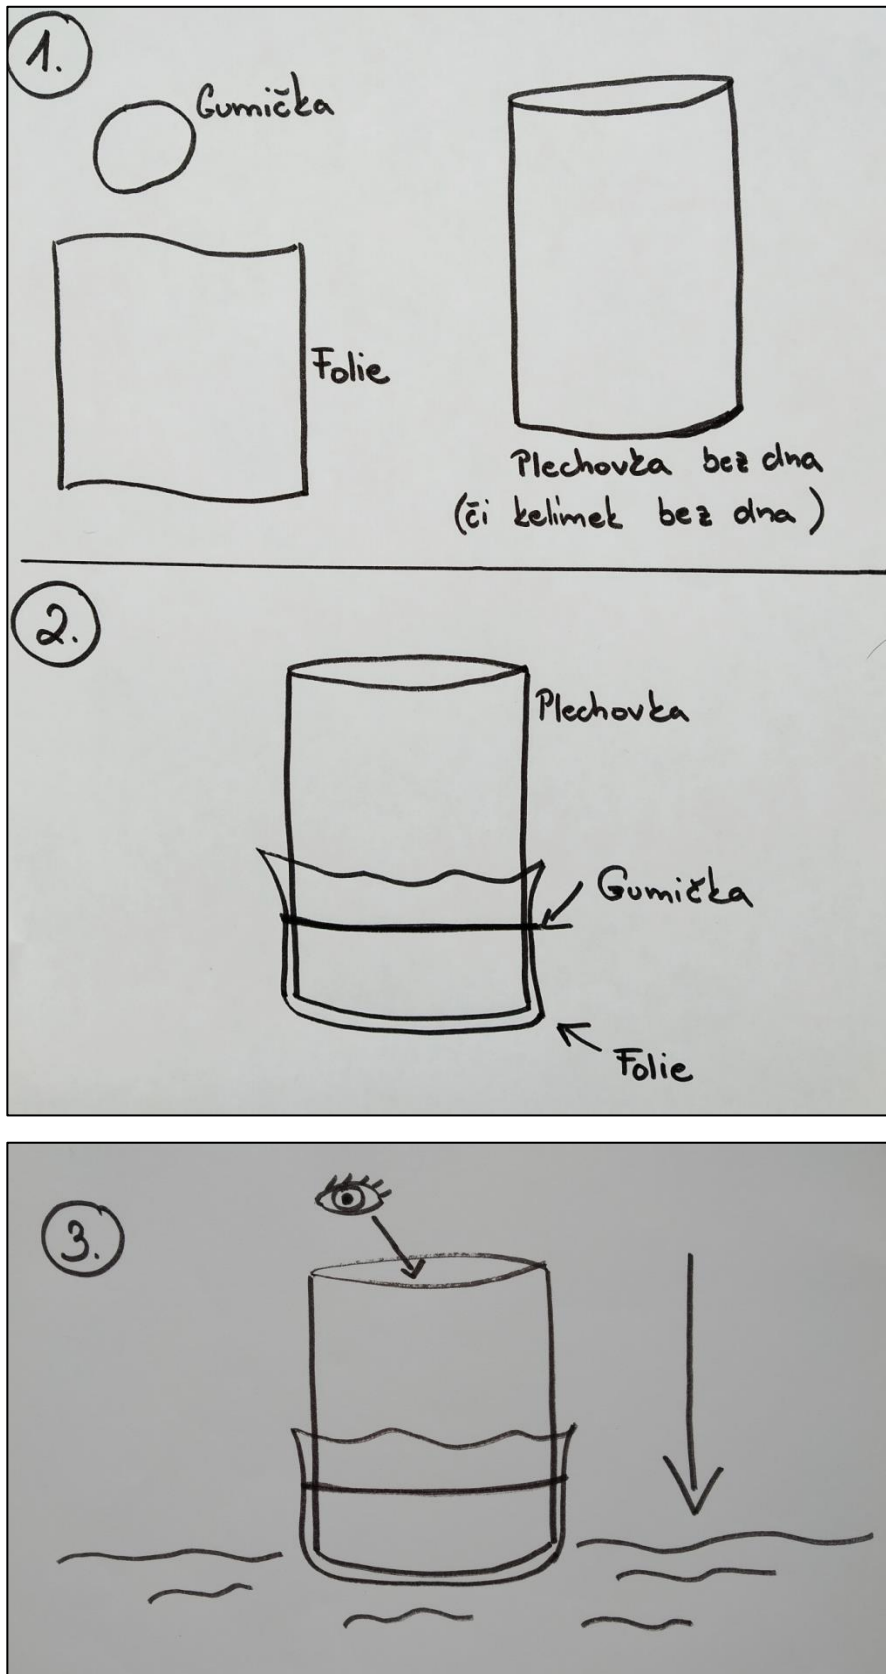 1.
Gumička
Folie
Plechovka bez dna
(či kelímek bez dna)
2.
Plechovka
Gumička
Folie
3.